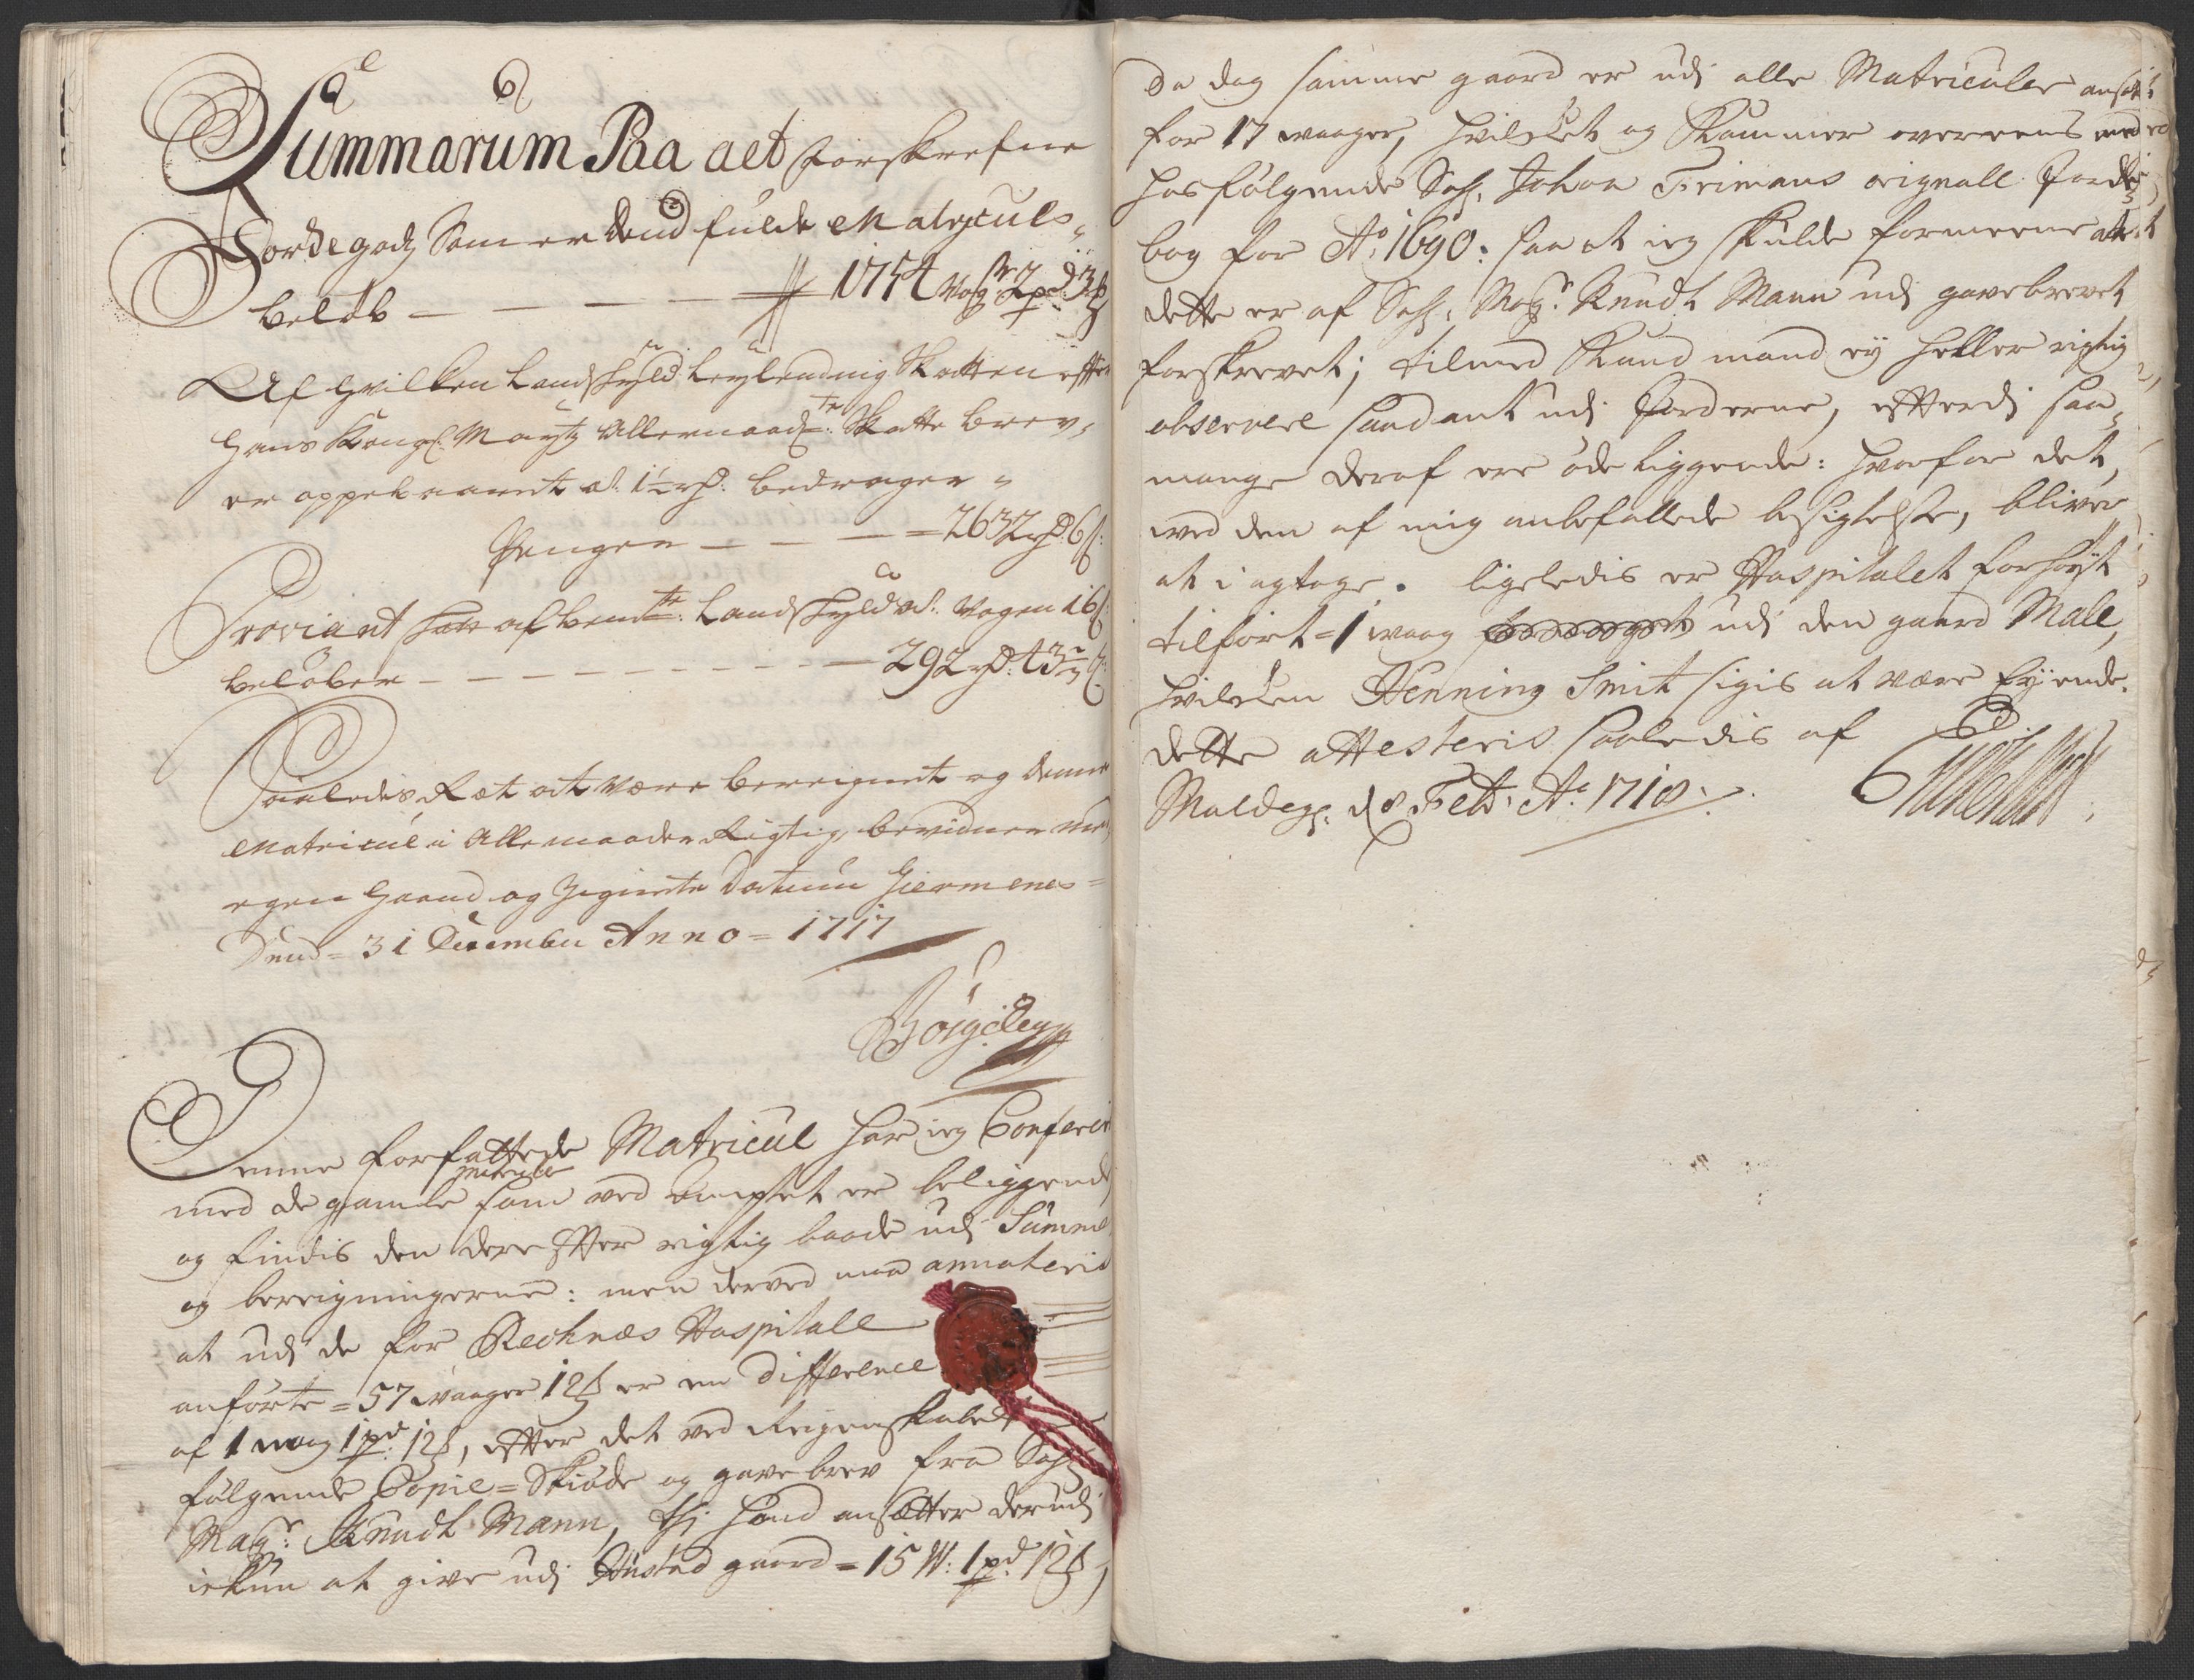 Summarum Paa alt forskrefne
Jordegodz Som er dend fulde Matriculs
beløb — — — 1754 Wog 2 pd 3 ℔
Af hvilken Landskyld Leylending Skatten effter
Hans Kongl: Maytz Allernaadte: Skatte brev,
er oppebaaret a 1½ rd: bedrager
Penger — — — = 2632 rd: 6 s:
Proviant af bemte: Landskyld a: Wogen 16 s:
beløber — — — — — — 292 rd: 43
Saaledes Ret at være beregnet og denne
Matricul i Alle maader Rigtig, bevidner med
egen Haand og Zignete Datum Giermenes
Dend = 31 December Anno = 1717
Denne forfattede Matricul har ieg Conferert
med de gamle Matricule som ved Ambtet er beliggende
og findis den derefter rigtig baade udj Summe
og beregningerne: men derved maa annoteris
at udj de for Rechnes Hospitall
anførte = 57 waager 12 ℔ er en difference
af 1 waag 1 pd: 12 ℔, efter det ved Regenskabet
følgende Copie = Skiøde og gavebrev fra Sahl:
Magr: Knudt Mann, thj hand ansetter derudj
ickun at give udj Hustad gaard = 15 W: 1 pd: 12 ℔,
da dog samme gaard er udj alle Matriculer ansat
for 17 waager, hvilcket og Kommer overeens med
hosfølgende Sahl: Johan Frimans orignall Jorde
bog for Ao 1690: saa at ieg skulde formeene at
dette er af Sahl: Magr: Knudt Mann udj gavebrevet
forskrevet; tilmed Kand mand ey heller rigtig
observere saadant udj Jorderne, efterdj saa
mange deraf ere øde liggende: hvorfor det,
ved den af mig anbefallede besigtelse, bliver
at i agtage. ligeledis er Hospitalet forhøyt
tilført = 1 waag udj den gaard Male,
hvilcken Henning Smit sigis at være Eyende.
dette attesteris saaledis af
Moldeg: d 8 Feb: Ao 1718.